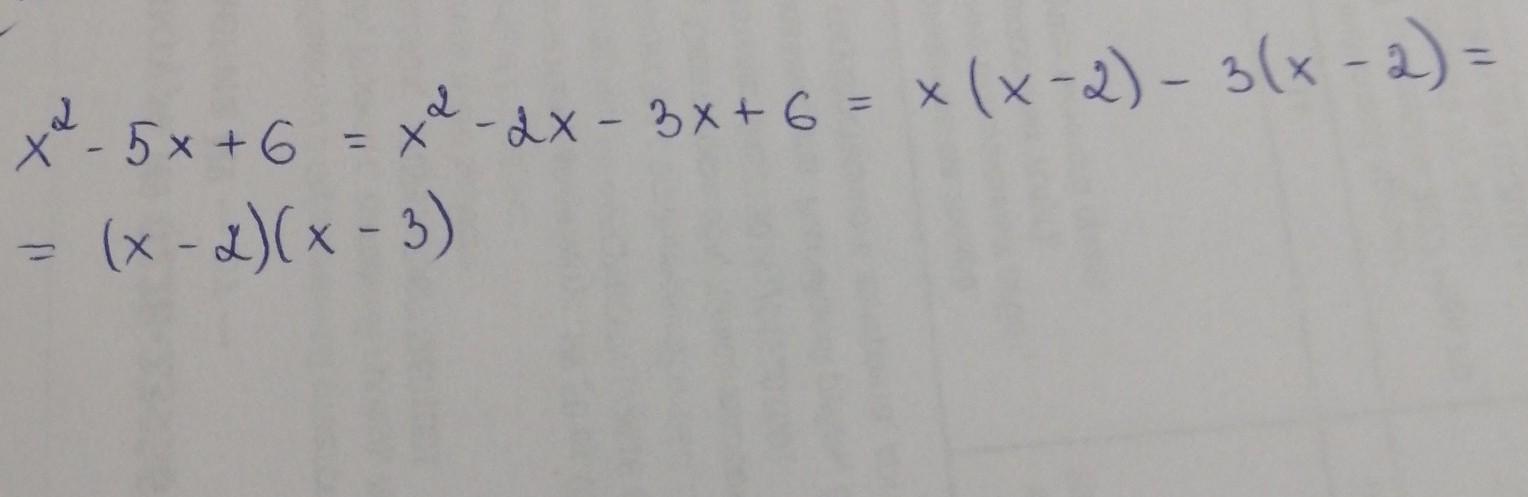 x² - 5x + 6 = x² - 2x - 3x + 6 = x(x - 2) - 3(x - 2) =
= (x - 2)(x - 3)